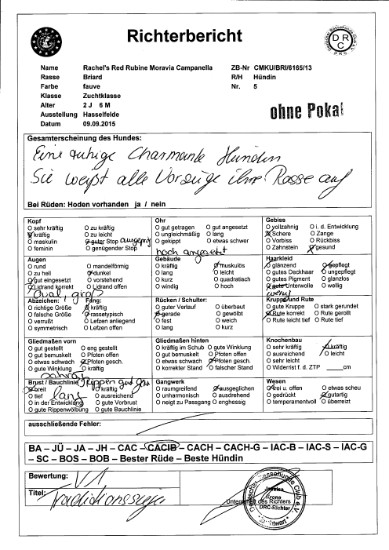 Richterbericht
Name Rachel's Red Rubine Moravia Campanella ZB-Nr CMKU/BRI/6165/13
Rasse Briard R/H Hündin
Farbe fauve Nr. 5
Klasse Zuchtklasse
Alter 2 J 6 M
Ausstellung Hasselfelde
Datum 09.09.2015
ohne Pokal
Gesamterscheinung des Hundes:
Eine ruhige Charmante Hündin
Sie weißt alle Vorzüge ihre Rasse auf
Bei Rüden: Hoden vorhanden ja / nein
Kopf Ohr Gebiss
sehr kräftig zu kräftig gut getragen gut angesetzt vollzahnig i. d. Entwicklung
kräftig zu leicht ungleichmäßig lang Schere Zange
maskulin guter Stop gekippt etwas schwer Vorbiss Rückbiss
feminin genügender Stop hoch angesetzt Zahnstein gesund
Augen Gebäude Haarkleid
rund mandelförmig kräftig muskulös glänzend gepflegt
zu hell dunkel lang leicht gutes Deckhaar ungepflegt
gut eingesetzt vorstehend kurz quadratisch gutes Pigment glanzlos
Lidrand korrekt Lidrand offen windig hoch Unterwolle wellig
Abzeichen: Fang: Rücken / Schulter: Kruppe und Rute
richtige Größe kräftig guter Verlauf überbaut gut gewinkelt stark gerundet
falsche Größe rassetypisch gerade gewölbt Rute korrekt Rute gerollt
verrußt Lefzen anliegend fest weich Rute leicht tief Rute tief
symmetrisch Lefzen offen lang kurz
Gliedmaßen vorn Gliedmaßen hinten Knochenbau
gut gestellt eng gestellt kräftig im Schub gute Winkelung sehr kräftig kräftig
gut bemuskelt Pfoten offen gut bemuskelt Pfoten offen ausreichend leicht
etwas schwach Pfoten gesch. etwas schwach Pfoten gesch. sehr leicht
gute Winkelung korrekter Stand falscher Stand Widerrist lf. ZTP ____cm
Brust / Bauchlinie Gangwerk Wesen
breit kräftig raumgreifend ausgeglichen frei etwas scheu
tief ausreichend unharmonisch ausdrehend gedrückt gutartig
in der Entwicklung gute Vorbrust neigt zu Passgang enghessig temperamentvoll überreizt
gute Rippenwölbung gute Bauchlinie
ausschließende Fehler:
BA – JÜ – JA – JH – CAC – CACIB – CACH – CACH-G – IAC-B – IAC-S – IAC-G
– SC – BOS – BOB – Bester Rüde – Beste Hündin
Bewertung: V1
Titel: Traditionssieger